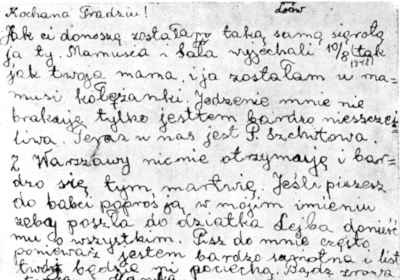 Lwów
Kochana Fradziu!
Jak ci donoszą zostałam taką samą sierotą
ja ty. Mamusia i Lala wyjechali 10/8 tak
(1942)
jak twoja mama, i ja zostałam u ma-
musi koleżanki. Jedzenie mnie nie
brakuje tylko jesttem bardzo niesszczęś
liwa. Teraz u nas jest P. Szechtowa.
Z Warszawy nic nie otrzymają i bar-
dzo się tym martwię. Jeśli piszesz
do babci poproś ją w mojim imieniu
żeby poszła do dziatka Lejba donieść
mu o wszystkim. Pisz do mnie często
ponieważ jestem bardzo samotna i list
twój będzie mi pociechą. Bądź